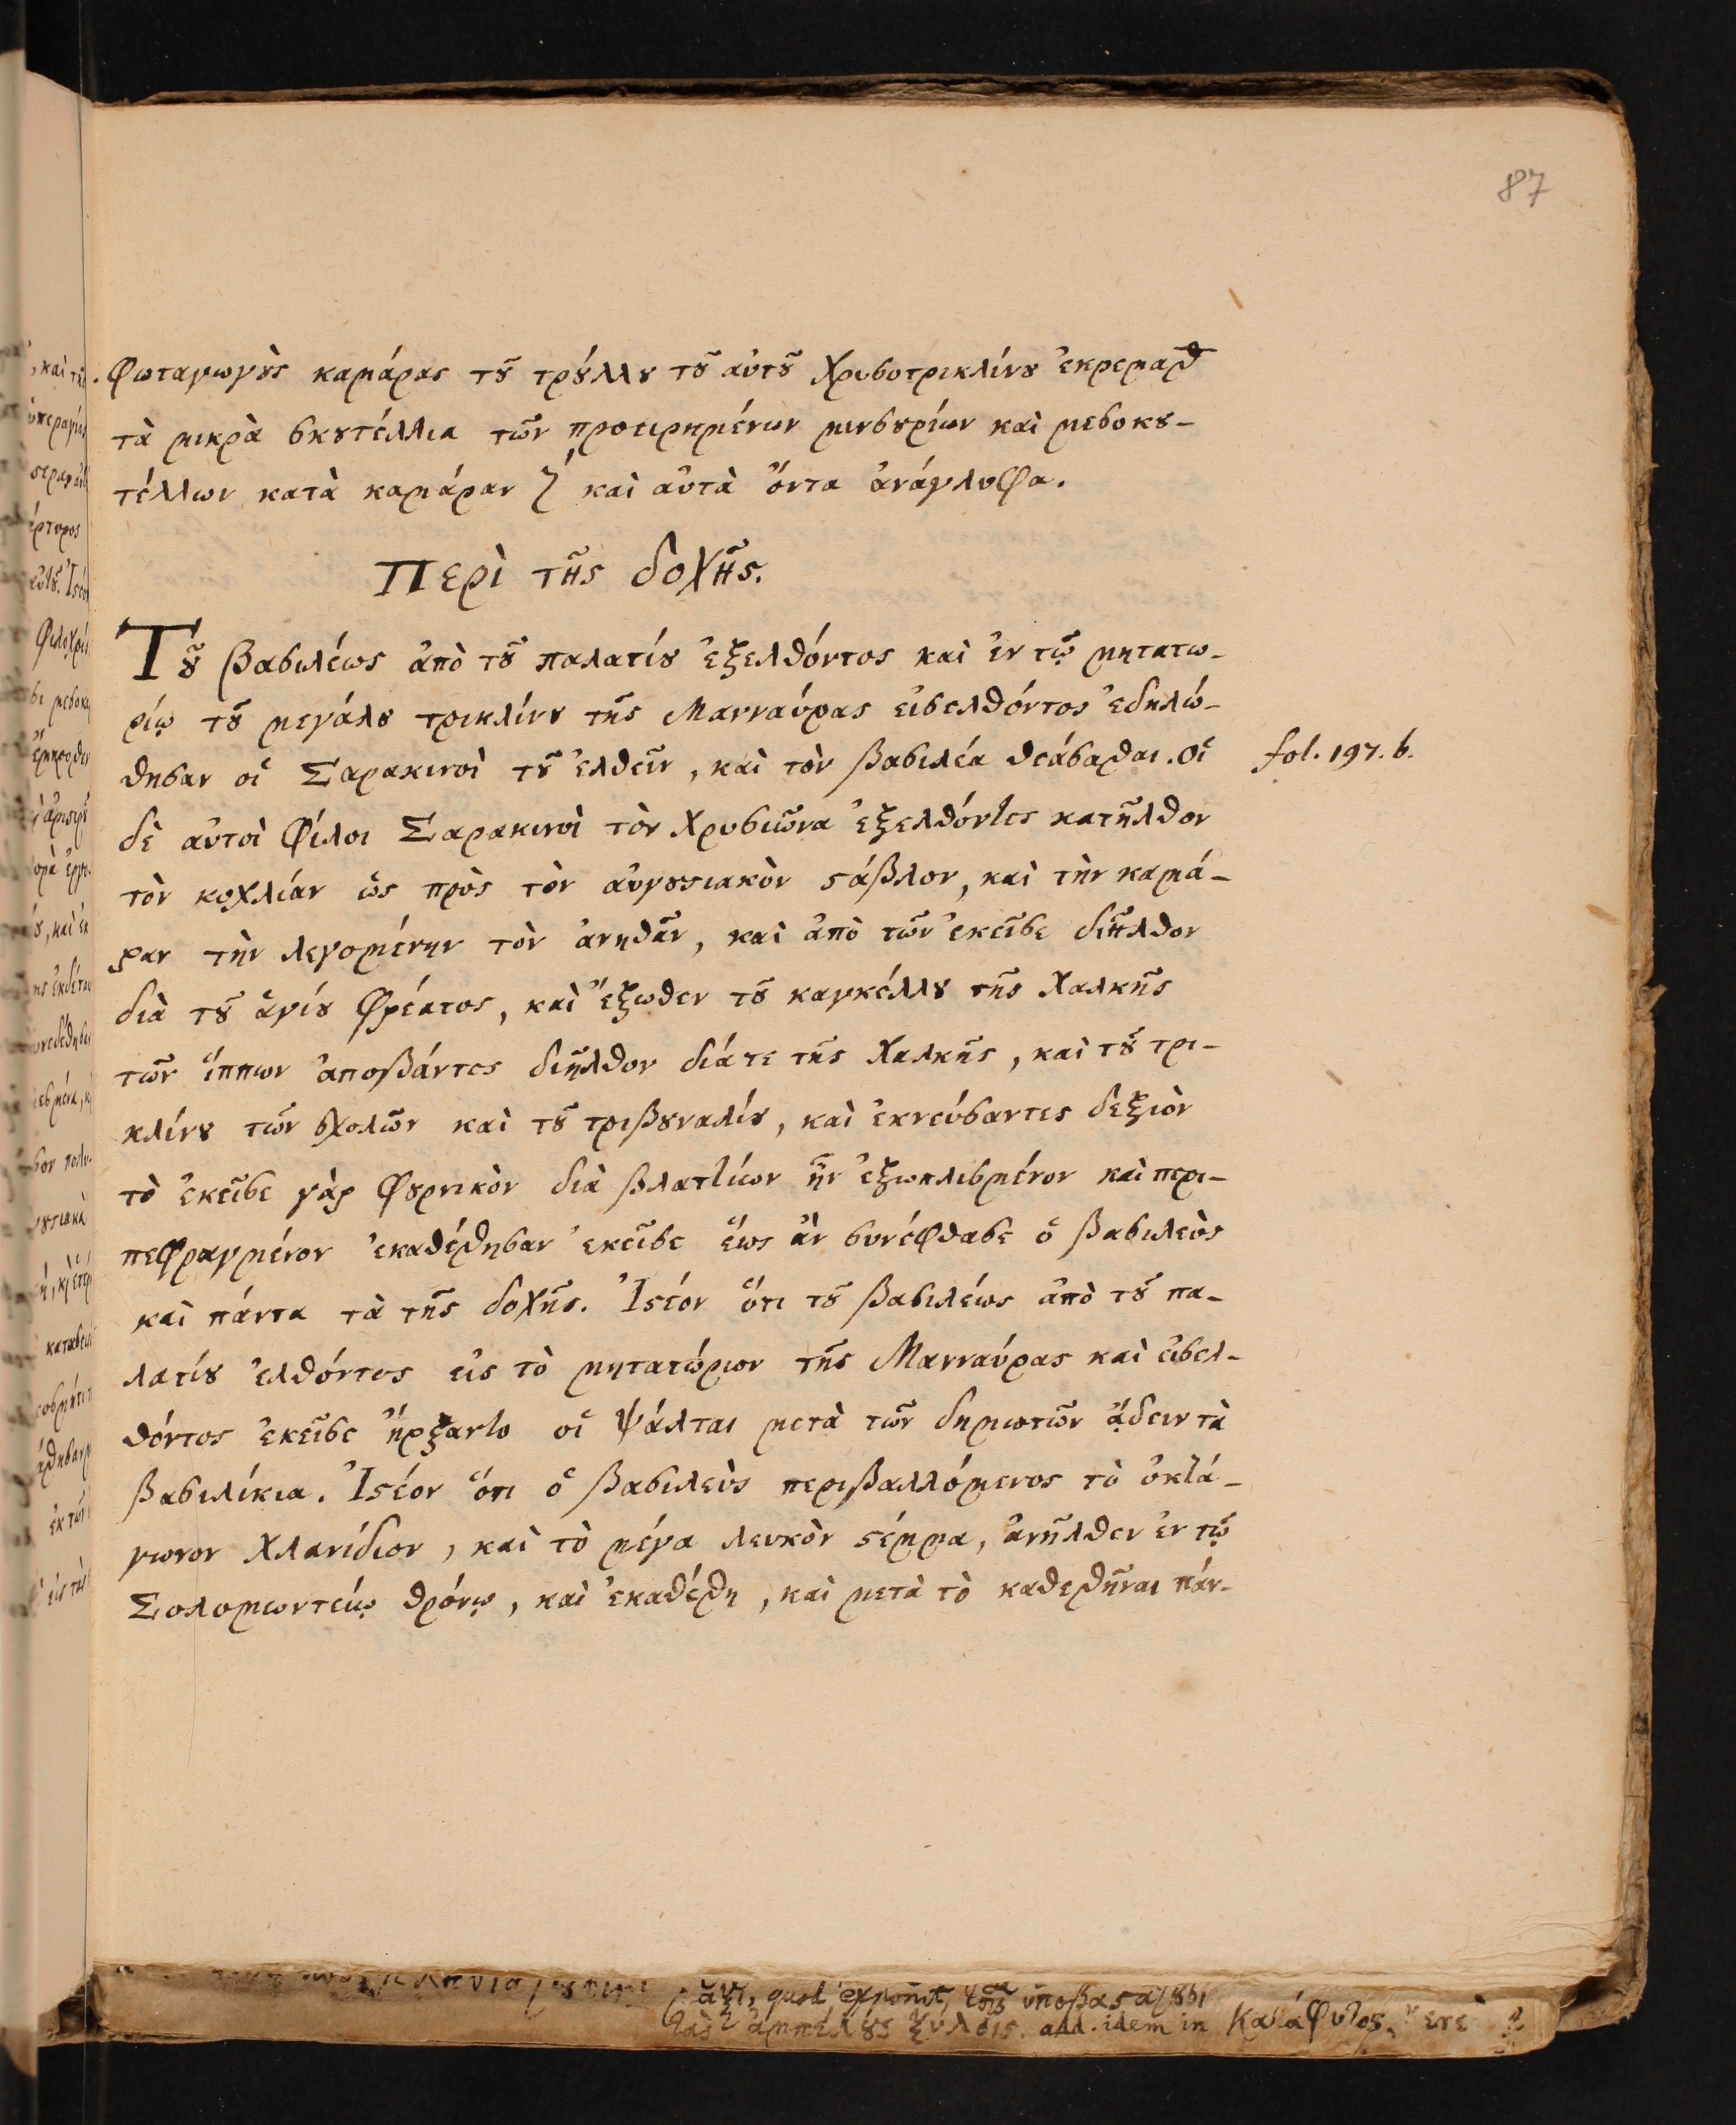 87
φωταγωγὺς καμάρας τȣ͂ τρȣ́λλȣ τȣ͂ αὐτȣ͂ Χρυσοτρικλίνȣ ἐκρεμασθ
τὰ μικρὰ σκȣτέλλια τῶν προειρημένων μινσȣρίων καὶ μεσοκȣ-
τέλλων κατὰ καμάραν ζ´ καὶ αὐτὰ ὄντα ἀνάγλυφα.
Περὶ τῆς δοχῆς.
Τȣ͂ βασιλέως ἀπὸ τȣ͂ παλατίȣ ἐξελθόντος καὶ ἐν τῷ μητατω-
ρίῳ τȣ͂ μεγάλȣ τρικλίνȣ τῆς Μανναύρας εἰσελθόντος ἐδηλώ-
θησαν οἱ Σαρακινοὶ τȣ͂ ἐλθεῖν, καὶ τὸν βασιλέα θεάσασθαι. οἱ
fol. 197. b.
δὲ αὐτοὶ φίλοι Σαρακινοὶ τὸν Χρυσιῶνα ἐξελθόντες κατῆλθον
τὸν κοχλίαν ὡς πρὸς τὸν αὐγȣστιακὸν στάβλον, καὶ τὴν καμά-
ραν τὴν λεγομένην τὸν ἀνηθᾶν, καὶ ἀπὸ τῶν ἐκεῖσε διῆλθον
διὰ τȣ͂ ἁγίȣ φρέατος, καὶ ἔξωθεν τȣ͂ καγκέλλȣ τῆς Χαλκῆς
τῶν ἵππων ἀποβάντες διῆλθον διά τε τῆς Χαλκῆς, καὶ τȣ͂ τρι-
κλίνȣ τῶν σχολῶν καὶ τȣ͂ τριβȣναλίȣ, καὶ ἐκνεύσαντες δεξιὸν
τὸ ἐκεῖσε γὰρ φȣρνικὸν διὰ βλαττίων ἦν ἐξωπλισμένον καὶ περι-
πεφραγμένον ἐκαθέσθησαν ἐκεῖσε ἕως ἂν συνέφθασε ὁ βασιλεὺς
καὶ πάντα τὰ τῆς δοχῆς. Ἰστέον ὅτι τȣ͂ βασιλέως ἀπὸ τȣ͂ πα-
λατίȣ ἐλθόντος εἰς τὸ μητατώριον τῆς Μανναύρας καὶ εἰσελ-
θόντος ἐκεῖσε ἤρξαντο οἱ ψάλται μετὰ τῶν δημοτῶν ᾄδειν τὰ
βασιλίκια. Ἰστέον ὅτι ὁ βασιλεὺς περιβαλλόμενος τὸ ὀκτά-
γωνον χλανίδιον, καὶ τὸ μέγα λευκὸν στέμμα, ἀνῆλθεν ἐν τῷ
Σολομωντείῳ θρόνῳ, καὶ ἐκαθέσθη, καὶ μετὰ τὸ καθεσθῆναι πάν-